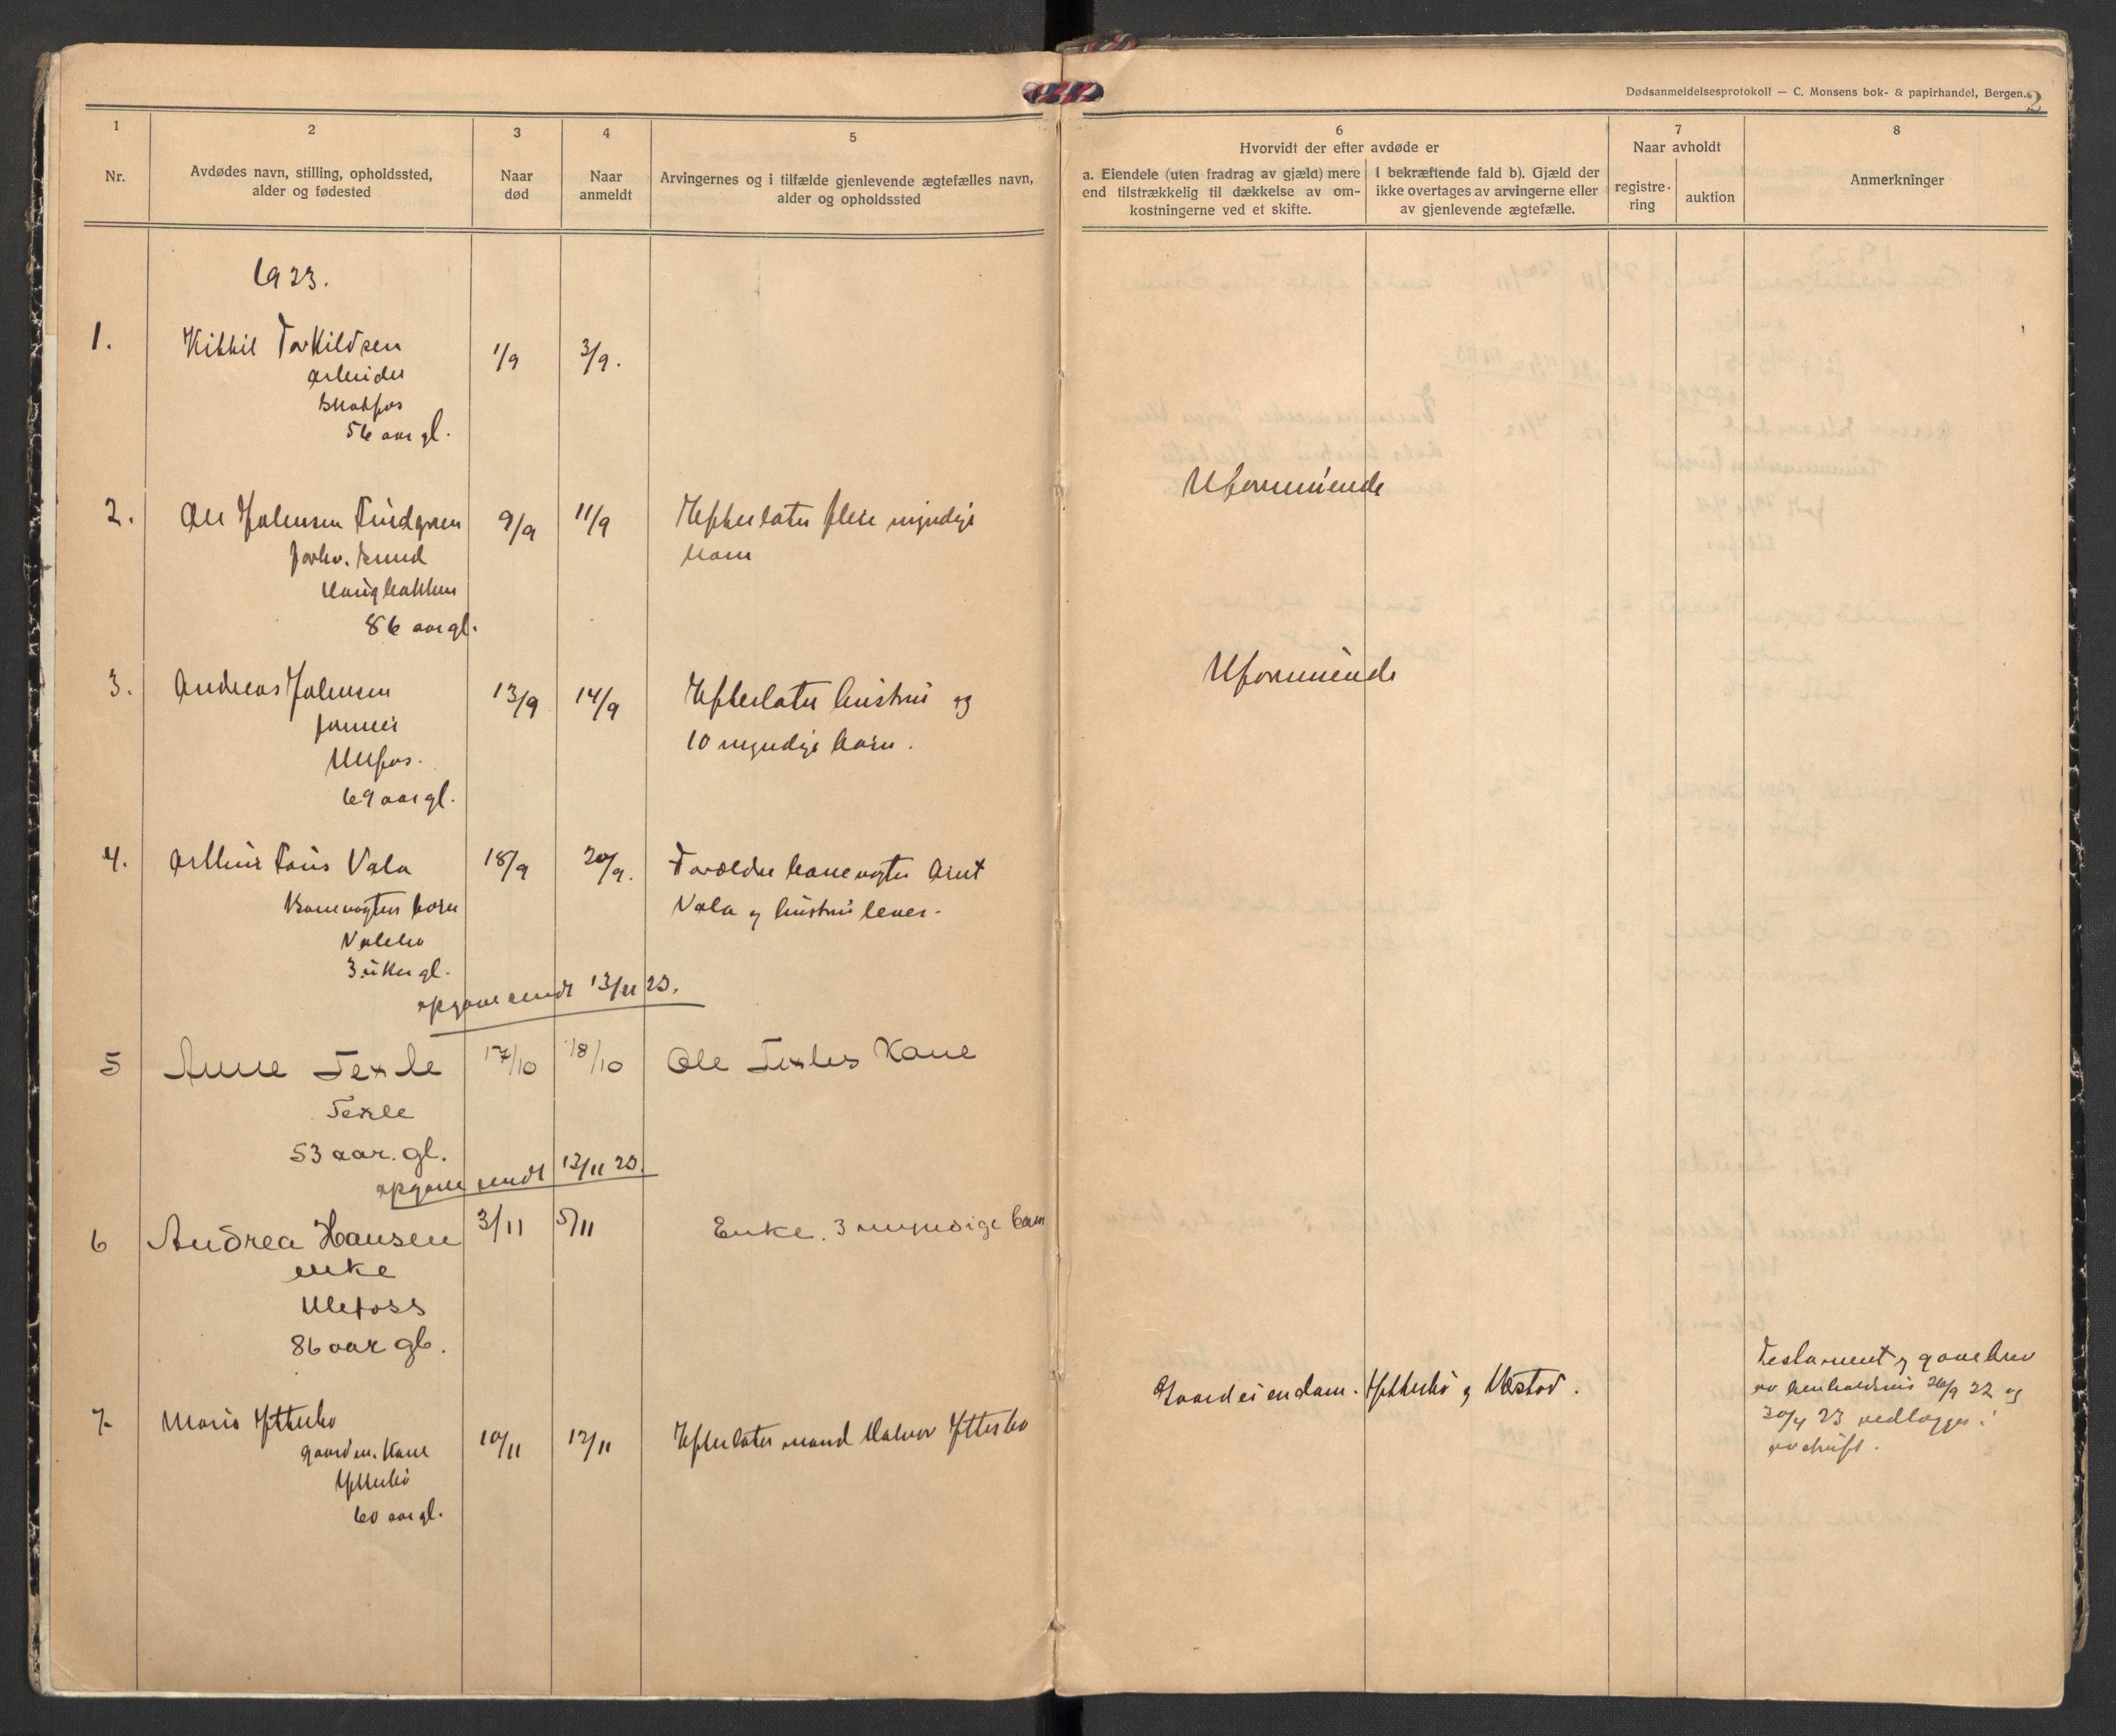 Dødsanmeldelsesprotokoll — C. Monsens bok- & papirhandel, Bergen.
2
1
Nr.
2
Avdødes navn, stilling, opholdssted,
alder og fødested
3
Naar
død
4
Naar
anmeldt
5
Arvingernes og i tilfælde gjenlevende ægtefælles navn,
alder og opholdssted
6
Hvorvidt der efter avdøde er
a. Eiendele (uten fradrag av gjæld) mere
end tilstrækkelig til dækkelse av om-
kostningerne ved et skifte.
I bekræftende fald b). Gjæld der
ikke overtages av arvingerne eller
av gjenlevende ægtefælle.
7
Naar avholdt
registre-
ring
auktion
8
Anmerkninger
1923.
1. Kittil Torkildsen 1/9 3/9.
arbeider
56 aar gl.
2. Ole Johnsen 9/9 11/9 Efterlater flere myndige
barn
Uformuende
86 aar gl.
3. Andreas Johnsen 13/9 14/9 Efterlater hustru og
10 myndige barn.
Uformuende
Ulefos.
69 aar gl.
4. Arthur Vala 18/9 20/9. Forældre banevogter Arnt
Vala og hustru lever.
Banevogters barn
Valebø
3 uker gl.
opgave sendt 13/11 23.
5 Anne Texle 17/10 18/10 Ole Texles Kone
Texle
53 aar. gl.
opgave sendt 13/11 23.
6 Andrea Hansen 3/11 5/11 Enke. 3 myndige barn
enke
Ulefoss
86 aar gl.
7. Maris Ytterbø 10/11 12/11 Efterlater mand Halvor Ytterbø
gaardm. kone
Ytterbø
60 aar gl.
Gaardeiendom. Ytterbø og
Testament og gavebrev
av henholdsvis 26/9 22 og
30/4 23 vedlægges i
avskrift.